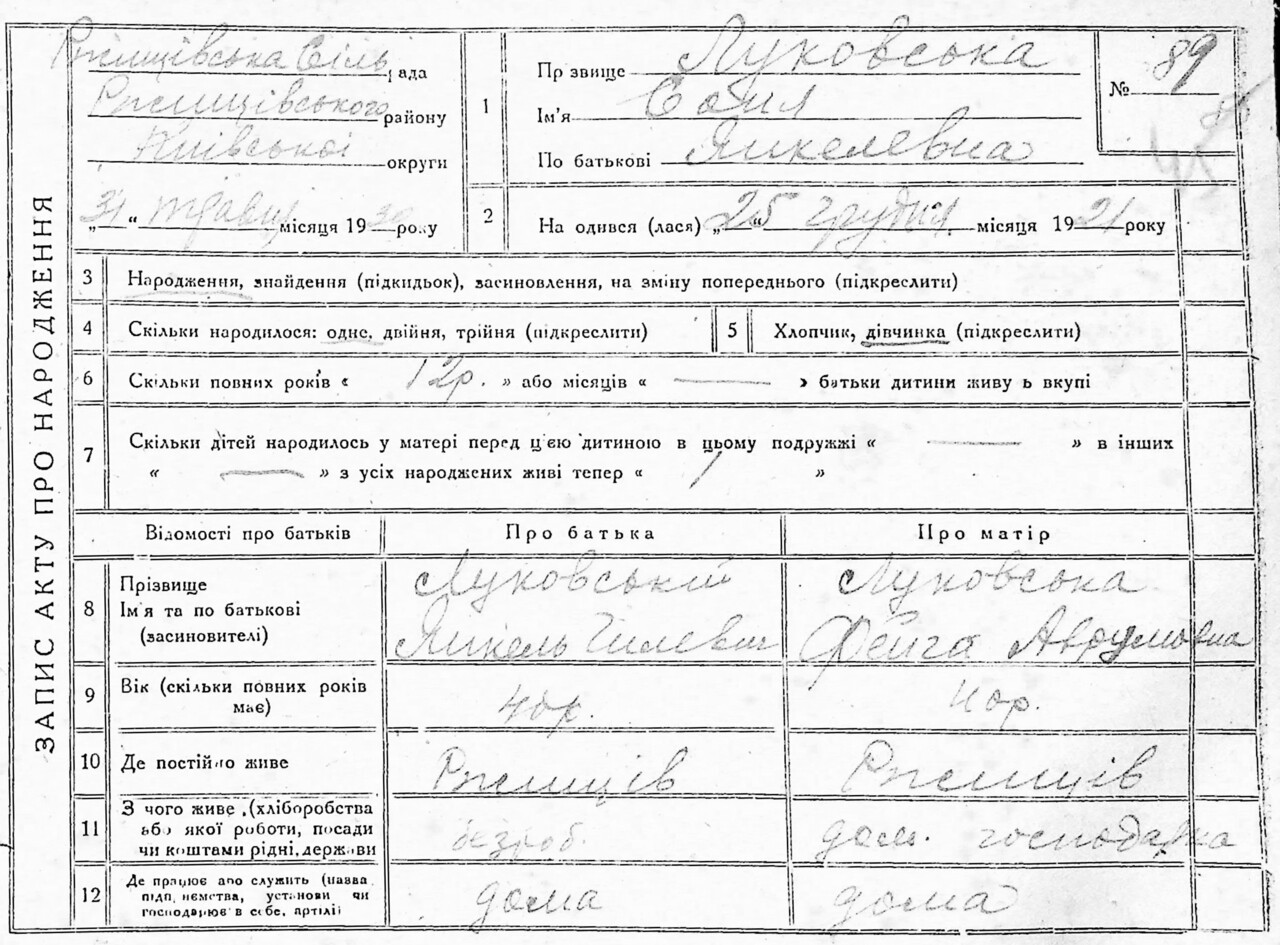 ЗАПИС АКТУ ПРО НАРОДЖЕННЯ
Ржищівська Сіль ада
Ржищівського району
Київської округи
„31“ травня місяця 1930 року
1
Пр звище Луковська
Ім'я Соня
По батькові Янкелевна
№ 89
2
На одився (лася) „25“ грудня місяця 1921 року
3 Народження, знайдення (підкидьок), засиновлення, на зміну попереднього (підкреслити)
4 Скільки народилося: одне, двійня, трійня (підкреслити) 5 Хлопчик, дівчинка (підкреслити)
6 Скільки повних років « 12р. » або місяців « — » батьки дитини живу ь вкупі
7 Скільки дітей народилось у матері перед цією дитиною в цьому подружжі « — » в інших
« — » з усіх народжених живі тепер « 1 »
Відомості про батьків Про батька Про матір
8 Прізвище
Ім'я та по батькові
(засиновителі)
Луковський
Янкель Чилевич
Луковська
Фейга Аврумовна
9 Вік (скільки повних років
має)
40р.
40р.
10 Де постійно живе Ржищів Ржищів
11 З чого живе, (хліборобства
або якої роботи, посади
чи коштами рідні, держави
безроб.
дом. господарка
12 Де працює або служить (назва
підп. немства, установи чи
господарює в себе, артілі)
дома
дома